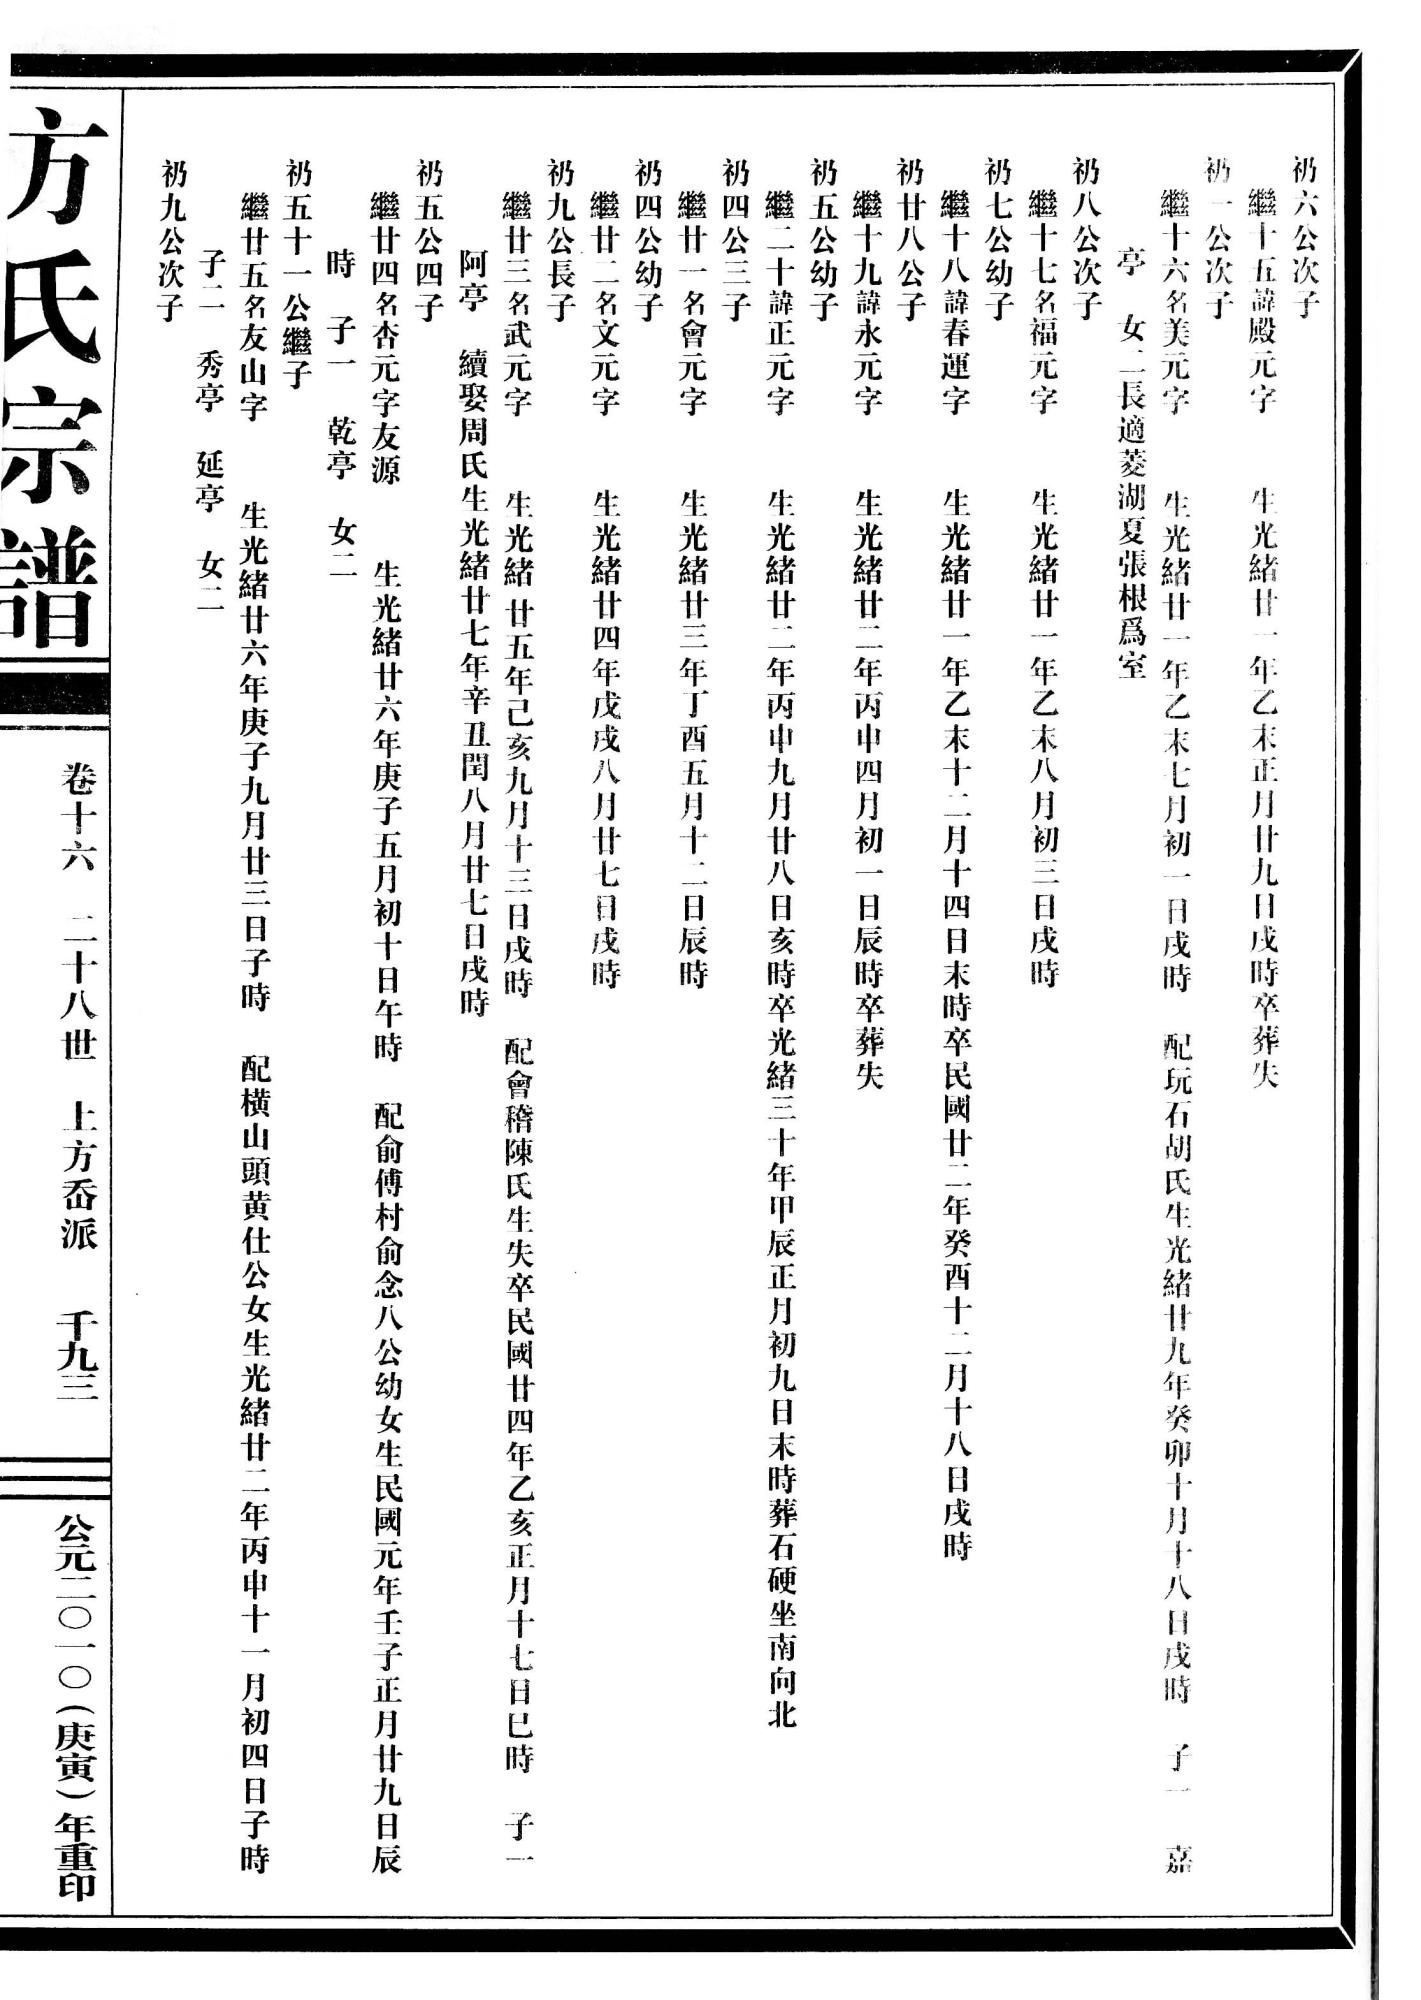 礽六公次子
繼十五諱殿元字　生光緒廿一年乙末正月廿九日戌時卒葬失
礽一公次子
繼十六名美元字　生光緒廿一年乙末七月初一日戌時　配玩石胡氏生光緒廿九年癸卯十月十八日戌時　子一　嘉
亭　女二長適菱湖夏張根爲室
礽八公次子
繼十七名福元字　生光緒廿一年乙末八月初三日戌時
礽七公幼子
繼十八諱春運字　生光緒廿一年乙末十二月十四日末時卒民國廿二年癸酉十二月十八日戌時
礽廿八公子
繼十九諱永元字　生光緒廿二年丙申四月初一日辰時卒葬失
礽五公幼子
繼二十諱正元字　生光緒廿二年丙申九月廿八日亥時卒光緒三十年甲辰正月初九日末時葬石硬坐南向北
礽四公三子
繼廿一名會元字　生光緒廿三年丁酉五月十二日辰時
礽四公幼子
繼廿二名文元字　生光緒廿四年戊戌八月廿七日戌時
礽九公長子
繼廿三名武元字　生光緒廿五年己亥九月十三日戌時　配會稽陳氏生失卒民國廿四年乙亥正月十七日巳時　子一
阿亭　續娶周氏生光緒廿七年辛丑閏八月廿七日戌時
礽五公四子
繼廿四名杏元字友源　生光緒廿六年庚子五月初十日午時　配俞傅村俞念八公幼女生民國元年壬子正月廿九日辰
時　子一　乾亭　女二
礽五十一公繼子
繼廿五名友山字　生光緒廿六年庚子九月廿三日子時　配橫山頭黄仕公女生光緒廿二年丙申十一月初四日子時
子二　秀亭　延亭　女二
礽九公次子
方氏宗譜
卷十六　二十八世　上方岙派　千九三
公元二〇一〇（庚寅）年重印